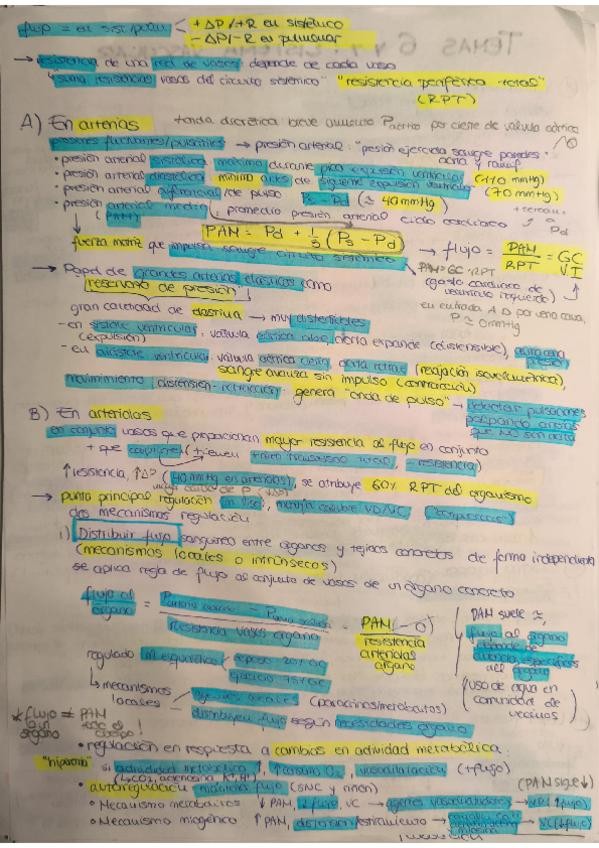 flujo = en sist/pulm
+ΔP/+R en sistémico
-ΔP/-R en pulmonar
→ resistencia de una red de vasos: depende de cada vaso
"suma resistencias" vasos del circuito sistémico" "resistencia periférica total"
(RPT)
A) En arterias
onda dicrótica: breve aumento Paórtica por cierre de válvula aórtica
presiones fluctuantes/pulsátiles → presión arterial: "presión ejercida sangre paredes"
aorta y ramas
• presión arterial sistólica: máxima durante pico expulsión ventricular (110 mmHg)
• presión arterial diastólica: mínimo antes de siguiente expulsión ventricular (70 mmHg)
• presión arterial diferencial/de pulso Ps - Pd (≈ 40mmHg)
• presión arterial media: promedio presión arterial ciclo cardíaco
(PAM)
a Pd
PAM = Pd + 1/3 (Ps - Pd)
fuerza motriz que impulsa sangre circuito sistémico
→ flujo = PAM/RPT = GC VI
PAM = GC · RPT
(gasto cardíaco de ventrículo izquierdo)
en entrada AD por vena cava,
P ≈ 0mmHg
→ Papel de grandes arterias elásticas como
reservorio de presión
gran cantidad de elastina → muy distensibles
- en sístole ventricular: válvula aórtica abre, aorta expande (distensible),
(expulsión)
- en diástole ventricular: válvula aórtica cierra, aorta retrae (relajación isovolumétrica),
sangre avanza sin impulso (contracción)
movimiento distensión-retracción genera "onda de pulso" → detectar pulsaciones
palpando arterias
que NO son aorta
B) En arteriolas
en conjunto vasos que proporcionan mayor resistencia al flujo en conjunto
+ que capilares (tienen + área transversal total, - resistencia)
↑resistencia, ↑ΔP (40mmHg en arteriolas), se atribuye 60% RPT del organismo
→ punto principal regulación
dos mecanismos regulación
1) Distribuir flujo sanguíneo entre órganos y tejidos concretos de forma independiente
(mecanismos locales o intrínsecos)
se aplica regla de flujo al conjunto de vasos de un órgano concreto
flujo al órgano = / Resistencia vasos órgano = PAM (-0) / resistencia arteriolas órgano
PAM suele ≈,
flujo al órgano
depende de
del órgano
(uso de agua en
comunidad de
vecinos)
regulado reposo 20% GC
↳ mecanismos locales (paracrinos/metabolitos)
distribuyen flujo según necesidades órgano
* flujo ≠ PAM
en un órgano todo el cuerpo!
• regulación en respuesta a cambios en actividad metabólica:
"hiperemia" si actividad metabólica ↑, ↑consumo O₂, vasodilatación (+flujo)
• autorregulación: mantiene flujo (SNC y riñón) (PAM sigue ↓)
• Mecanismo metabólico ↓PAM, ↓flujo, VC → agentes vasodilatadores → VD (↑flujo)
• Mecanismo miogénico ↑PAM, distensión/estiramiento → VC (↓flujo)